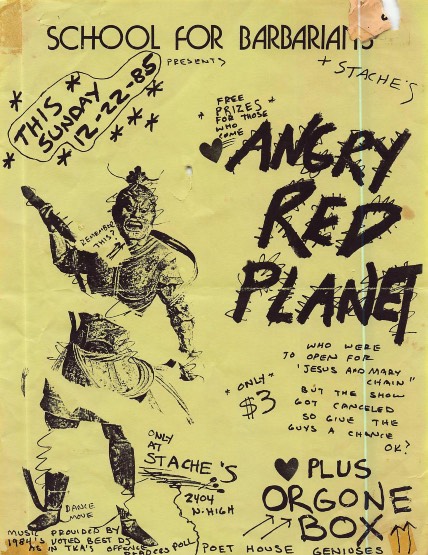 SCHOOL FOR BARBARIANS
PRESENTS
+ STACHE'S
THIS
SUNDAY
12-22-85
FREE
PRIZES
FOR THOSE
WHO
COME
ANGRY
RED
PLANET
REMEMBER
THIS?
WHO WERE
TO OPEN FOR
'JESUS AND MARY
CHAIN"
BUT THE SHOW
GOT CANCELED
SO GIVE THE
GUYS A CHANCE
OK?
"ONLY"
$3
ONLY
AT
STACHE'S
2404
N. HIGH
PLUS
ORGONE
BOX
DANCE
MOVE
MUSIC PROVIDED BY
1984'S VOTED BEST DJ
AS IN TKA'S OFFENCE
READERS POLL
POET HOUSE GENIUSES